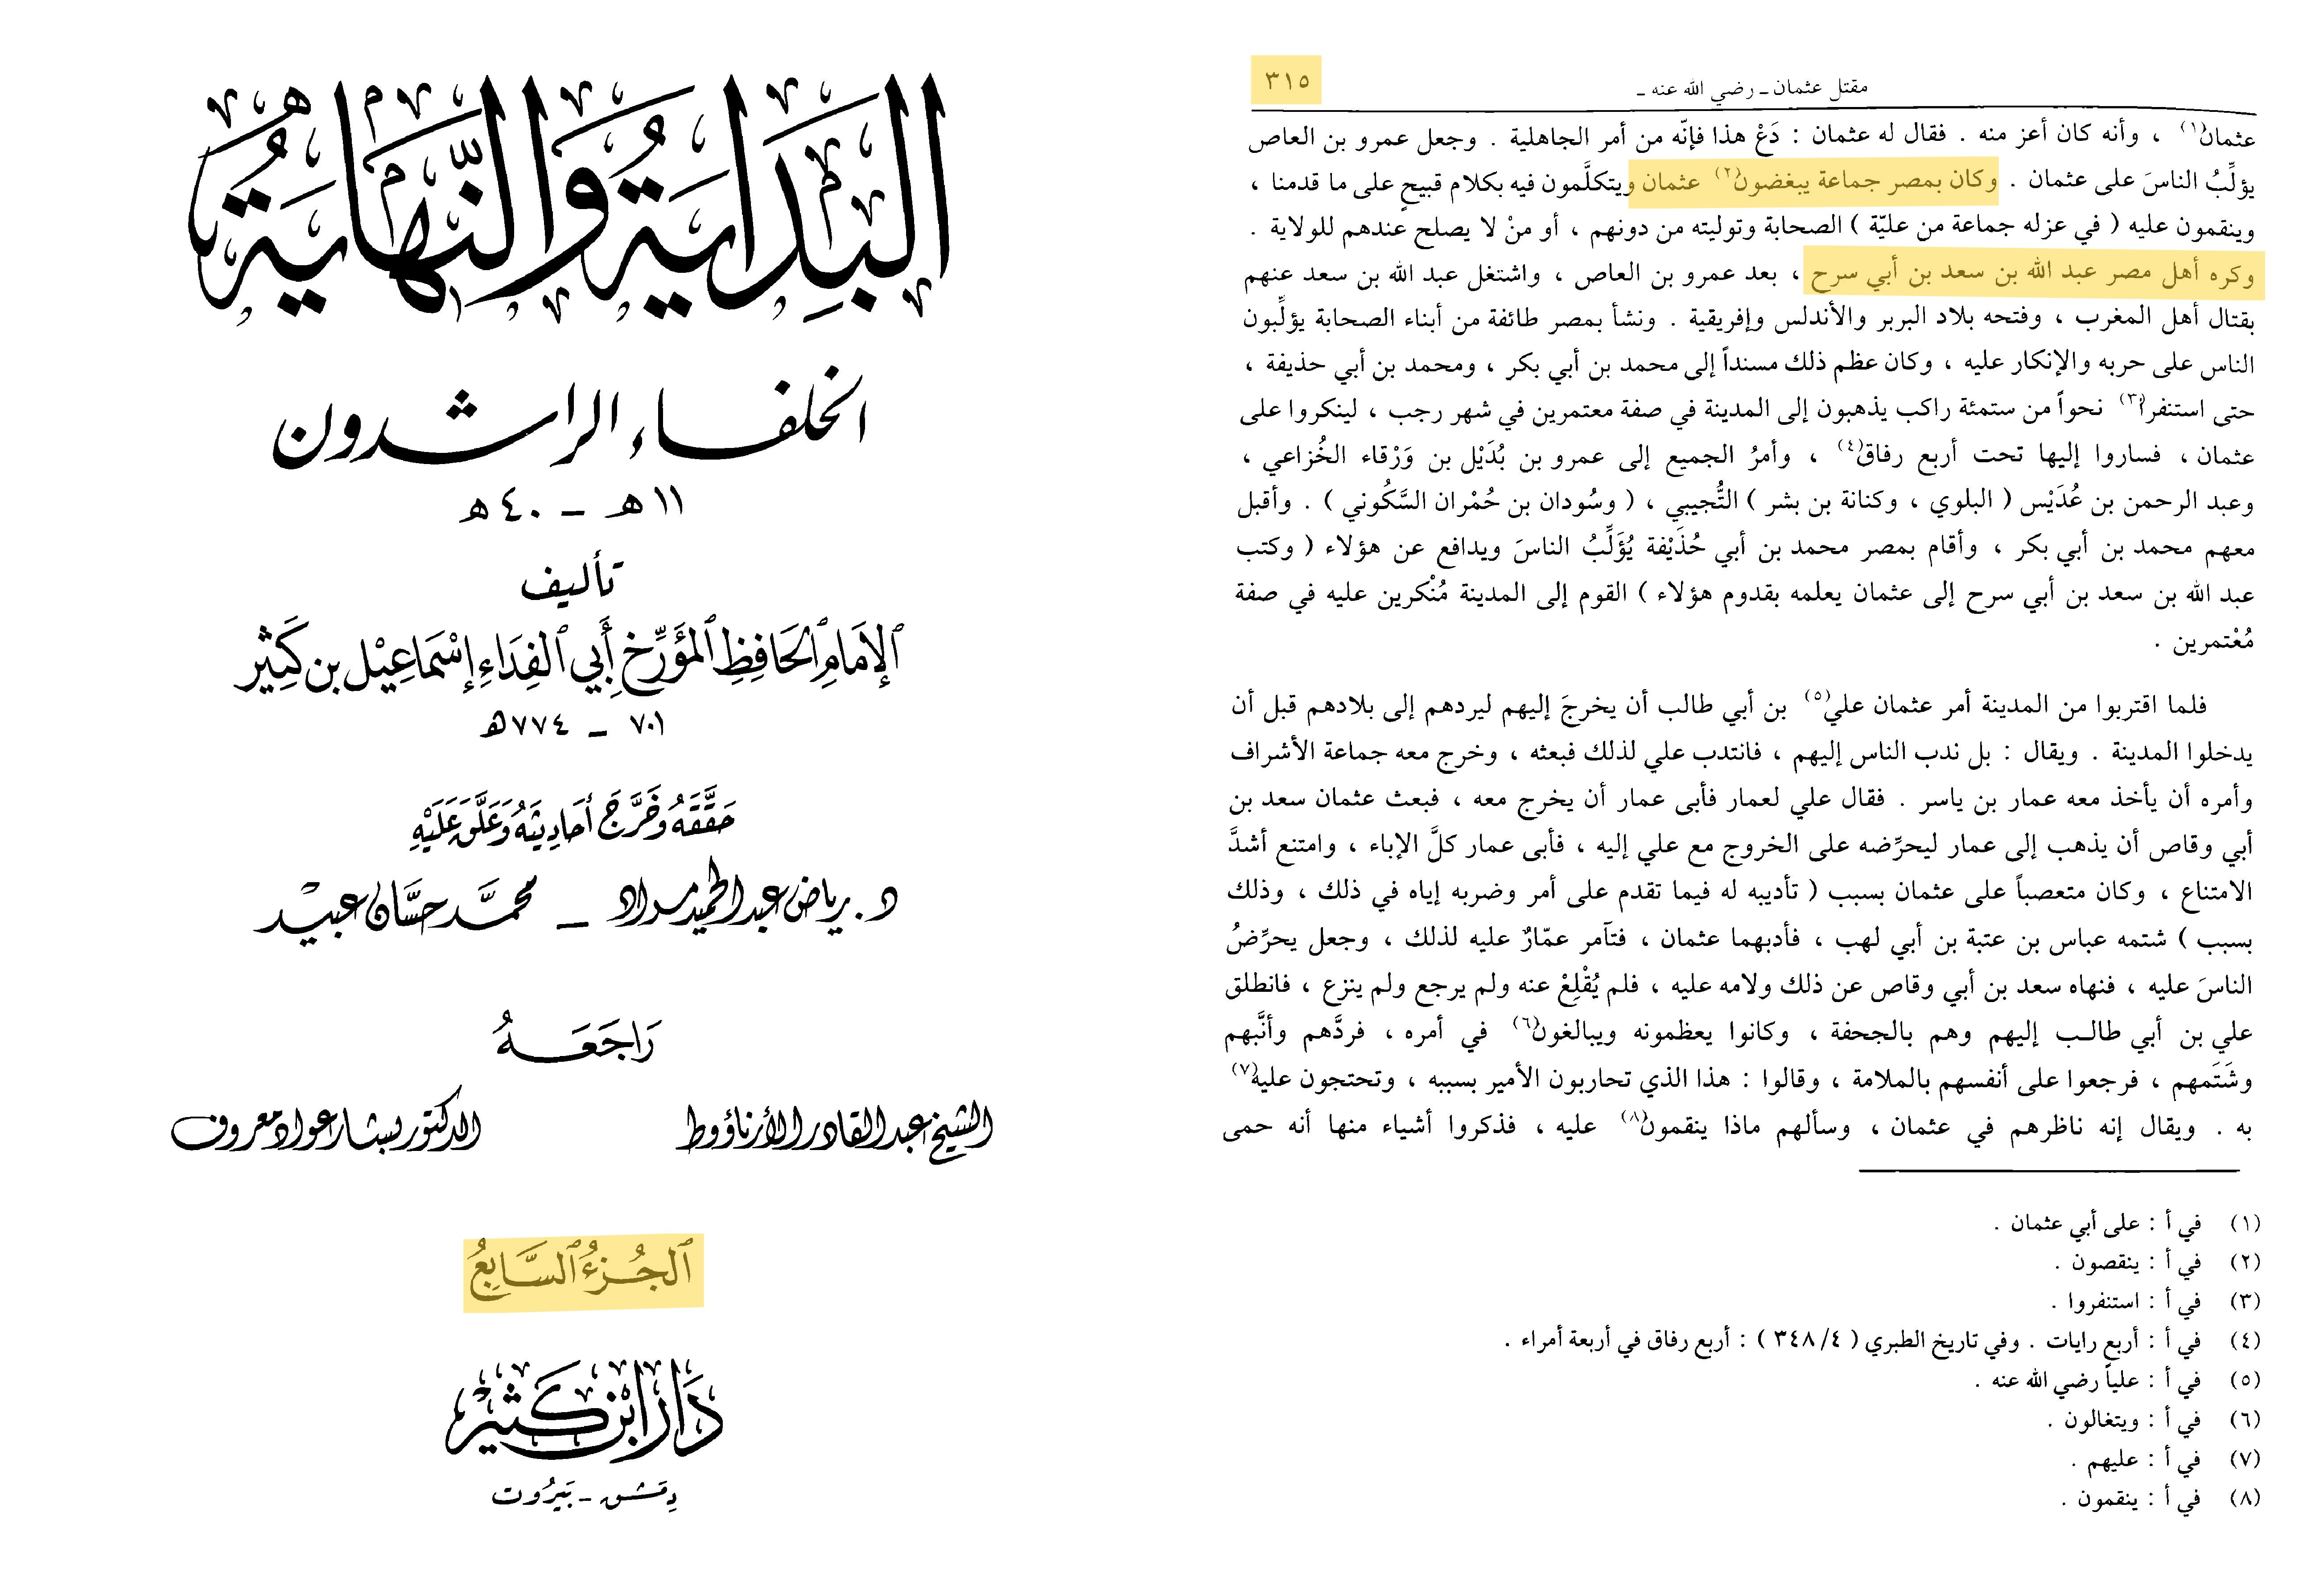 البداية والنهاية
الخلفاء الراشدون
١١ هـ - ٤٠ هـ
تأليف
الإمام الحافظ المؤرخ أبي الفداء إسماعيل بن كثير
٧٠١ - ٧٧٤ هـ
حققه وخرج أحاديثه وعلق عليه
د. رياض عبد الحميد مراد - محمد حسان عبيد
راجعه
الشيخ عبد القادر الأرناؤوط
الدكتور بشار عواد معروف
الجزء السابع
دار ابن كثير
دمشق - بيروت
مقتل عثمان ـ رضي الله عنه ـ
٣١٥
عثمان(١) ، وأنه كان أعز منه . فقال له عثمان : دَعْ هذا فإنّه من أمر الجاهلية . وجعل عمرو بن العاص
يؤلِّبُ الناسَ على عثمان . وكان بمصر جماعة يبغضون(٢) عثمان ويتكلَّمون فيه بكلام قبيحٍ على ما قدمنا ،
وينقمون عليه ( في عزله جماعة من عليّة ) الصحابة وتوليته من دونهم ، أو منْ لا يصلح عندهم للولاية .
وكره أهل مصر عبد الله بن سعد بن أبي سرح ، بعد عمرو بن العاص ، واشتغل عبد الله بن سعد عنهم
بقتال أهل المغرب ، وفتحه بلاد البربر والأندلس وإفريقية . ونشأ بمصر طائفة من أبناء الصحابة يؤلِّبون
الناس على حربه والإنكار عليه ، وكان عظم ذلك مسنداً إلى محمد بن أبي بكر ، ومحمد بن أبي حذيفة ،
حتى استنفرا(٣) نحواً من ستمئة راكب يذهبون إلى المدينة في صفة معتمرين في شهر رجب ، لينكروا على
عثمان ، فساروا إليها تحت أربع رفاق(٤) ، وأمرُ الجميع إلى عمرو بن بُدَيْل بن وَرْقاء الخُزاعي ،
وعبد الرحمن بن عُدَيْس ( البلوي ، وكنانة بن بشر ) التُّجيبي ، ( وسُودان بن حُمْران السَّكُوني ) . وأقبل
معهم محمد بن أبي بكر ، وأقام بمصر محمد بن أبي حُذَيْفة يُؤَلِّبُ الناسَ ويدافع عن هؤلاء ( وكتب
عبد الله بن سعد بن أبي سرح إلى عثمان يعلمه بقدوم هؤلاء ) القوم إلى المدينة مُنْكرين عليه في صفة
مُعْتمرين .
فلما اقتربوا من المدينة أمر عثمان علي(٥) بن أبي طالب أن يخرجَ إليهم ليردهم إلى بلادهم قبل أن
يدخلوا المدينة . ويقال : بل ندب الناس إليهم ، فانتدب علي لذلك فبعثه ، وخرج معه جماعة الأشراف
وأمره أن يأخذ معه عمار بن ياسر . فقال علي لعمار فأبى عمار أن يخرج معه ، فبعث عثمان سعد بن
أبي وقاص أن يذهب إلى عمار ليحرِّضه على الخروج مع علي إليه ، فأبى عمار كلَّ الإباء ، وامتنع أشدَّ
الامتناع ، وكان متعصباً على عثمان بسبب ( تأديبه له فيما تقدم على أمر وضربه إياه في ذلك ، وذلك
بسبب ) شتمه عباس بن عتبة بن أبي لهب ، فأدبهما عثمان ، فتآمر عمّارٌ عليه لذلك ، وجعل يحرِّضُ
الناسَ عليه ، فنهاه سعد بن أبي وقاص عن ذلك ولامه عليه ، فلم يُقْلِعْ عنه ولم يرجع ولم ينزع ، فانطلق
علي بن أبي طالب إليهم وهم بالجحفة ، وكانوا يعظمونه ويبالغون(٦) في أمره ، فردَّهم وأنَّبهم
وشَتَمهم ، فرجعوا على أنفسهم بالملامة ، وقالوا : هذا الذي تحاربون الأمير بسببه ، وتحتجون عليه(٧)
به . ويقال إنه ناظرهم في عثمان ، وسألهم ماذا ينقمون(٨) عليه ، فذكروا أشياء منها أنه حمى
(١) في أ : على أبي عثمان .
(٢) في أ : ينقصون .
(٣) في أ : استنفروا .
(٤) في أ : أربع رايات . وفي تاريخ الطبري ( ٣٤٨/٤ ) : أربع رفاق في أربعة أمراء .
(٥) في أ : علياً رضي الله عنه .
(٦) في أ : ويتغالون .
(٧) في أ : عليهم .
(٨) في أ : ينقمون .